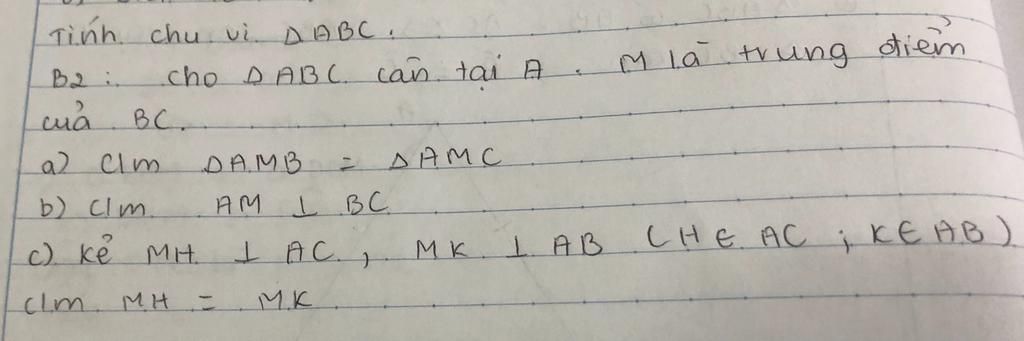 Tính chu vi ΔABC.
B2: cho ΔABC cân tại A. M là trung điểm
của BC.
a) C/m ΔAMB = ΔAMC
b) C/m AM ⊥ BC
c) Kẻ MH ⊥ AC, MK ⊥ AB (H ∈ AC ; K ∈ AB)
C/m MH = MK